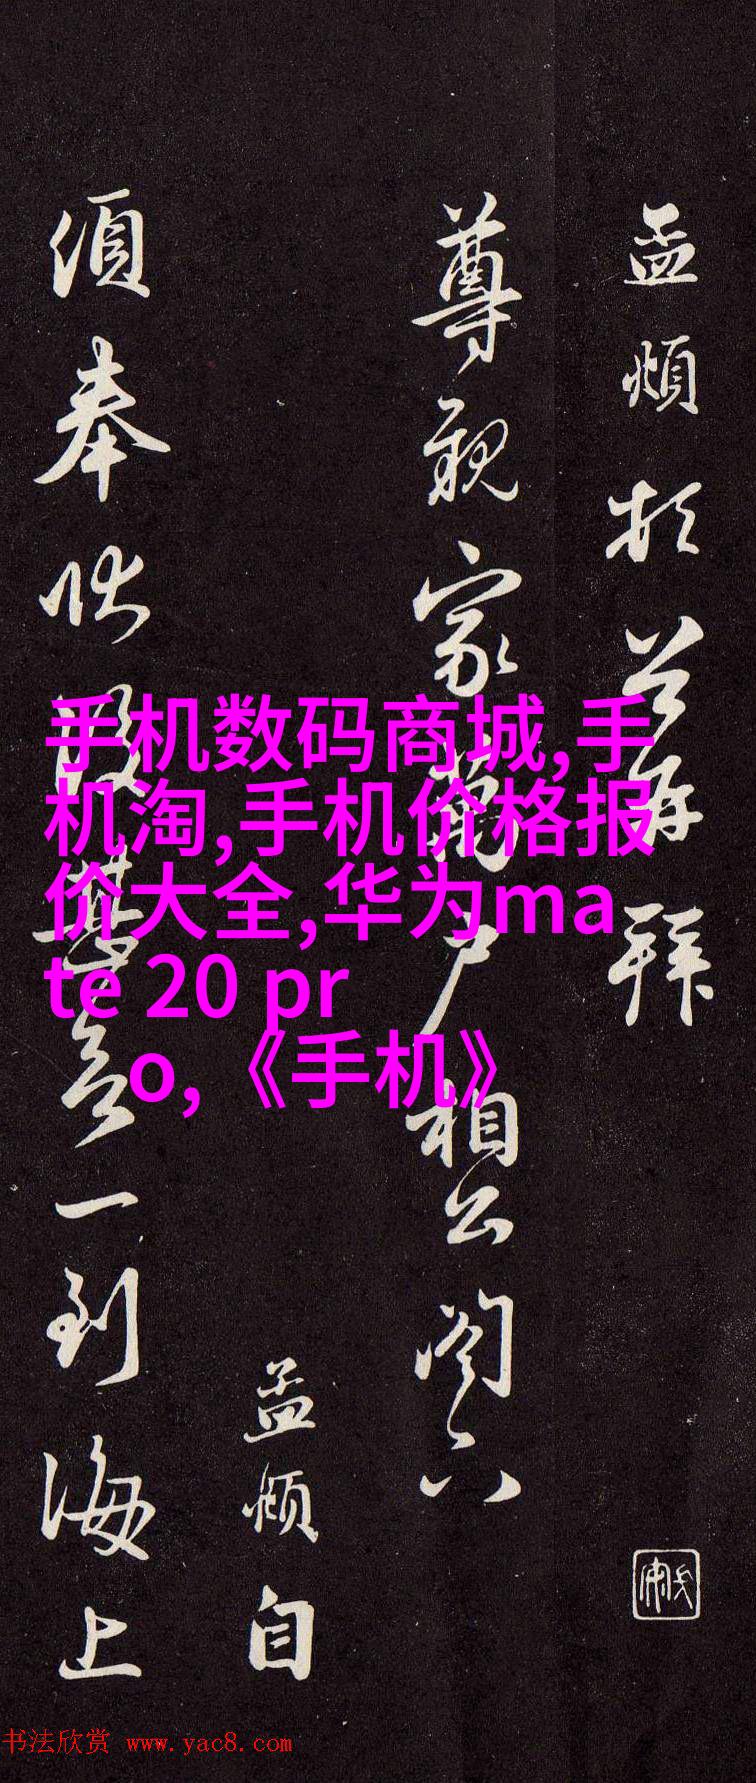 孟頫頓首再拜
尊親家萬戶相公閣下
孟頫自
頃奉狀後
一到海上
手机数码商城,手
机淘,手机价格报
价大全,华为ma
te 20 pr
o,《手机》
书法欣赏 www.yac8.com